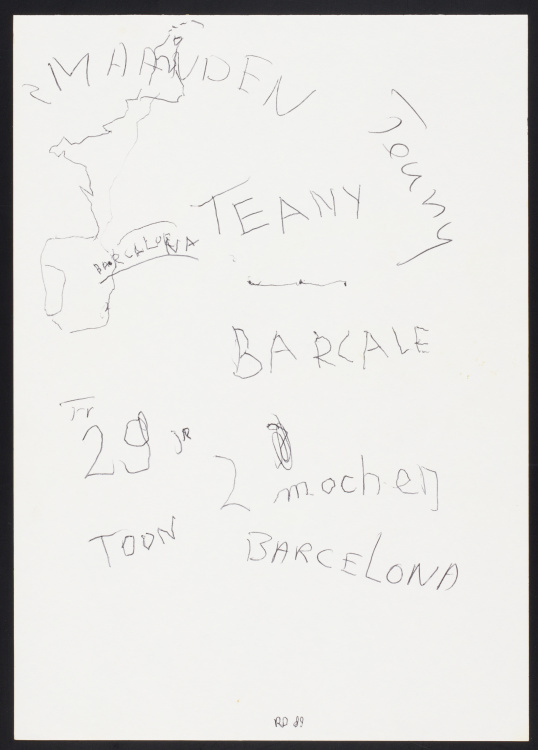 MAANDEN
Jeany
TEANY
BARCELONA
BARCALE
29 JR
2 mochen
TOON
BARCELONA
RD 89